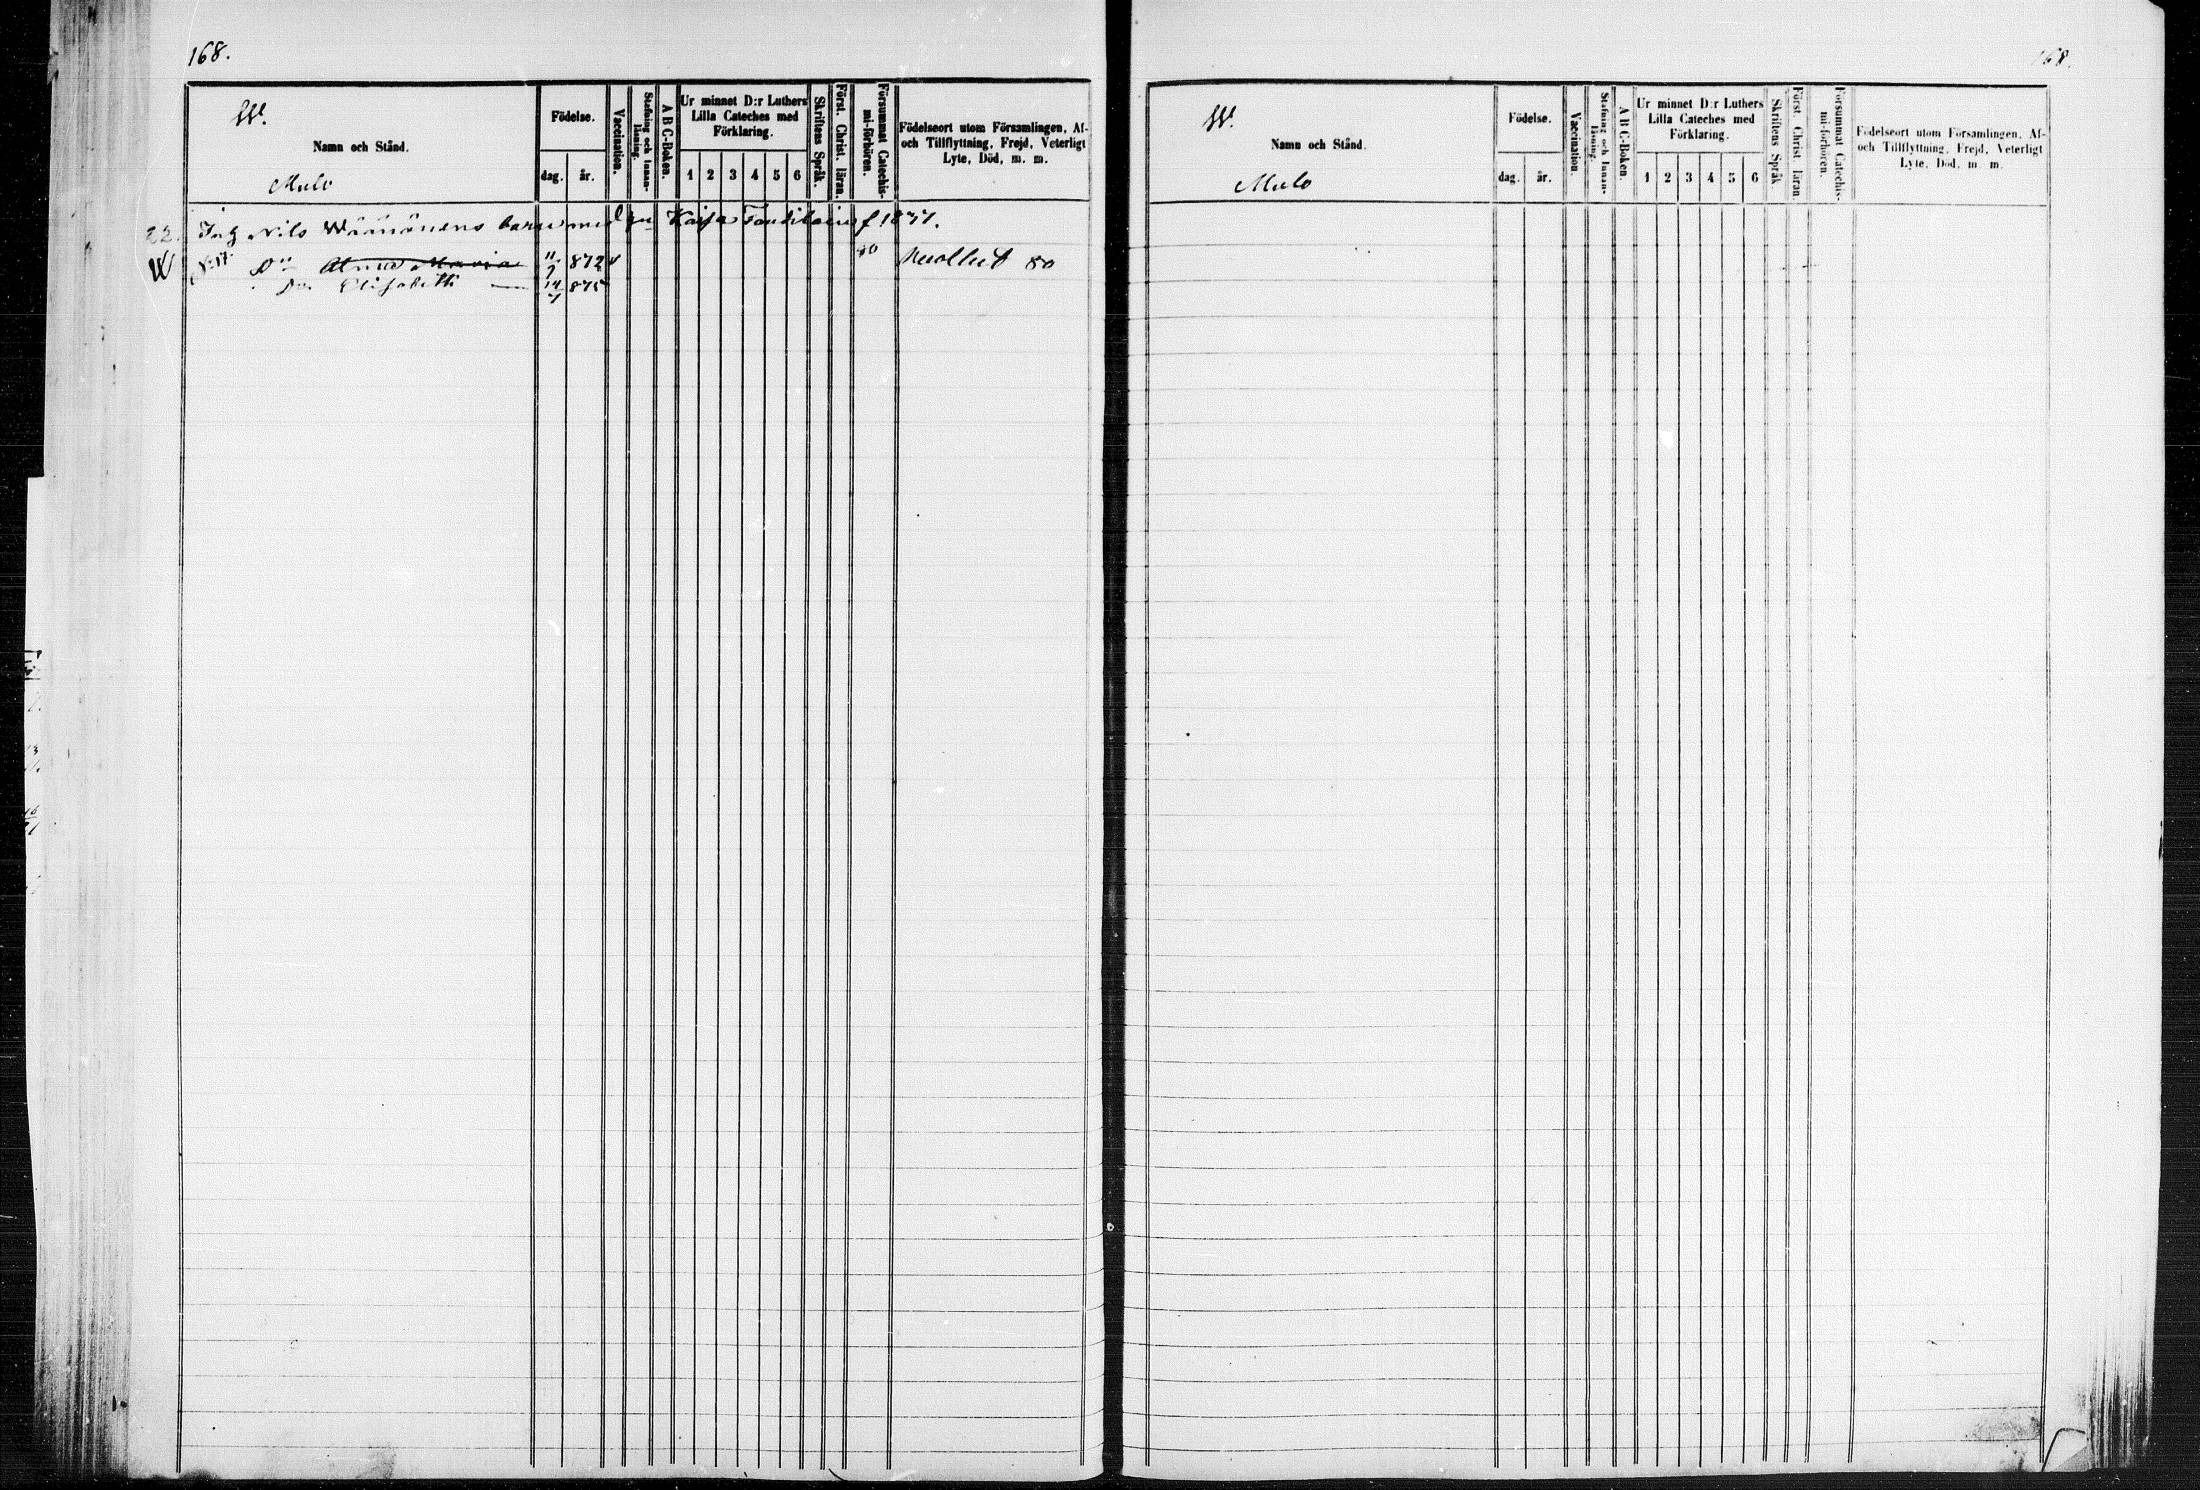 168.
W.
Namn och Stånd.
Mulo
Födelse.
dag. år.
Vaccination.
Stafning och Innanläsning.
A B C-Boken.
Ur minnet D:r Luthers
Lilla Cateches med
Förklaring.
1 2 3 4 5 6
Skriftens Språk.
Först. Christ. läran.
Försummat Catechis-
mi-förhören.
Födelseort utom Församlingen, Af-
och Tillflyttning, Frejd, Veterligt
Lyte, Död, m. m.
22. Nils Wäänänens barn med Kaisa f. 1877.
Dr Alma Maria 11/7 872 80 Kuollut 80
Dr Elisabeth 14/7 875
168.
W.
Namn och Stånd.
Mulo
Födelse.
dag. år.
Vaccination.
Stafning och Innanläsning.
A B C-Boken.
Ur minnet D:r Luthers
Lilla Cateches med
Förklaring.
1 2 3 4 5 6
Skriftens Språk
Först. Christ. läran.
Försummat Catechis-
mi-förhören.
Födelseort utom Församlingen, Af-
och Tillflyttning, Frejd, Veterligt
Lyte, Död, m. m.